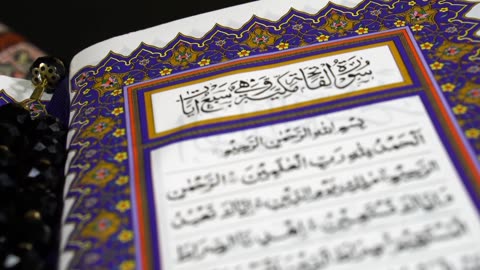 سُورَةُ الفَاتِحَةِ مَكِّيَّة وَهِيَ سَبْعُ آيَات
بِسْمِ اللهِ الرَّحْمٰنِ الرَّحِيْمِ
اَلْحَمْدُ لِلّٰهِ رَبِّ الْعٰلَمِيْنَ الرَّحْمٰنِ
الرَّحِيْمِ مٰلِكِ يَوْمِ الدِّيْنِ اِيَّاكَ نَعْبُدُ
وَاِيَّاكَ نَسْتَعِيْنُ اِهْدِنَا الصِّرَاطَ
الْمُسْتَقِيْمَ صِرَاطَ